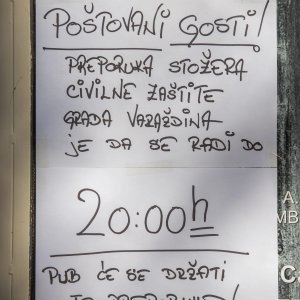 POŠTOVANI GOSTI!
PREPORUKA STOŽERA
CIVILNE ZAŠTITE
GRADA VARAŽDINA
je DA SE RADI DO
20:00h
PUB ĆE SE DRŽATI
A
MB
C